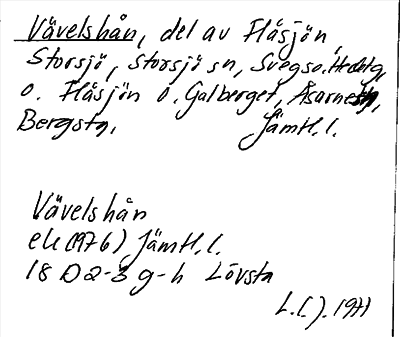 Vävelshån, del av Flåsjön,
Storsjö, Storsjö sn, Svegs o. Hedetg,
o. Flåsjön o. Galberget, Åsarne
Bergstg. Jämtl. l.
Vävelshån
ek (1976) Jämtl. l.
18 D 2-3 g-h Lövsta